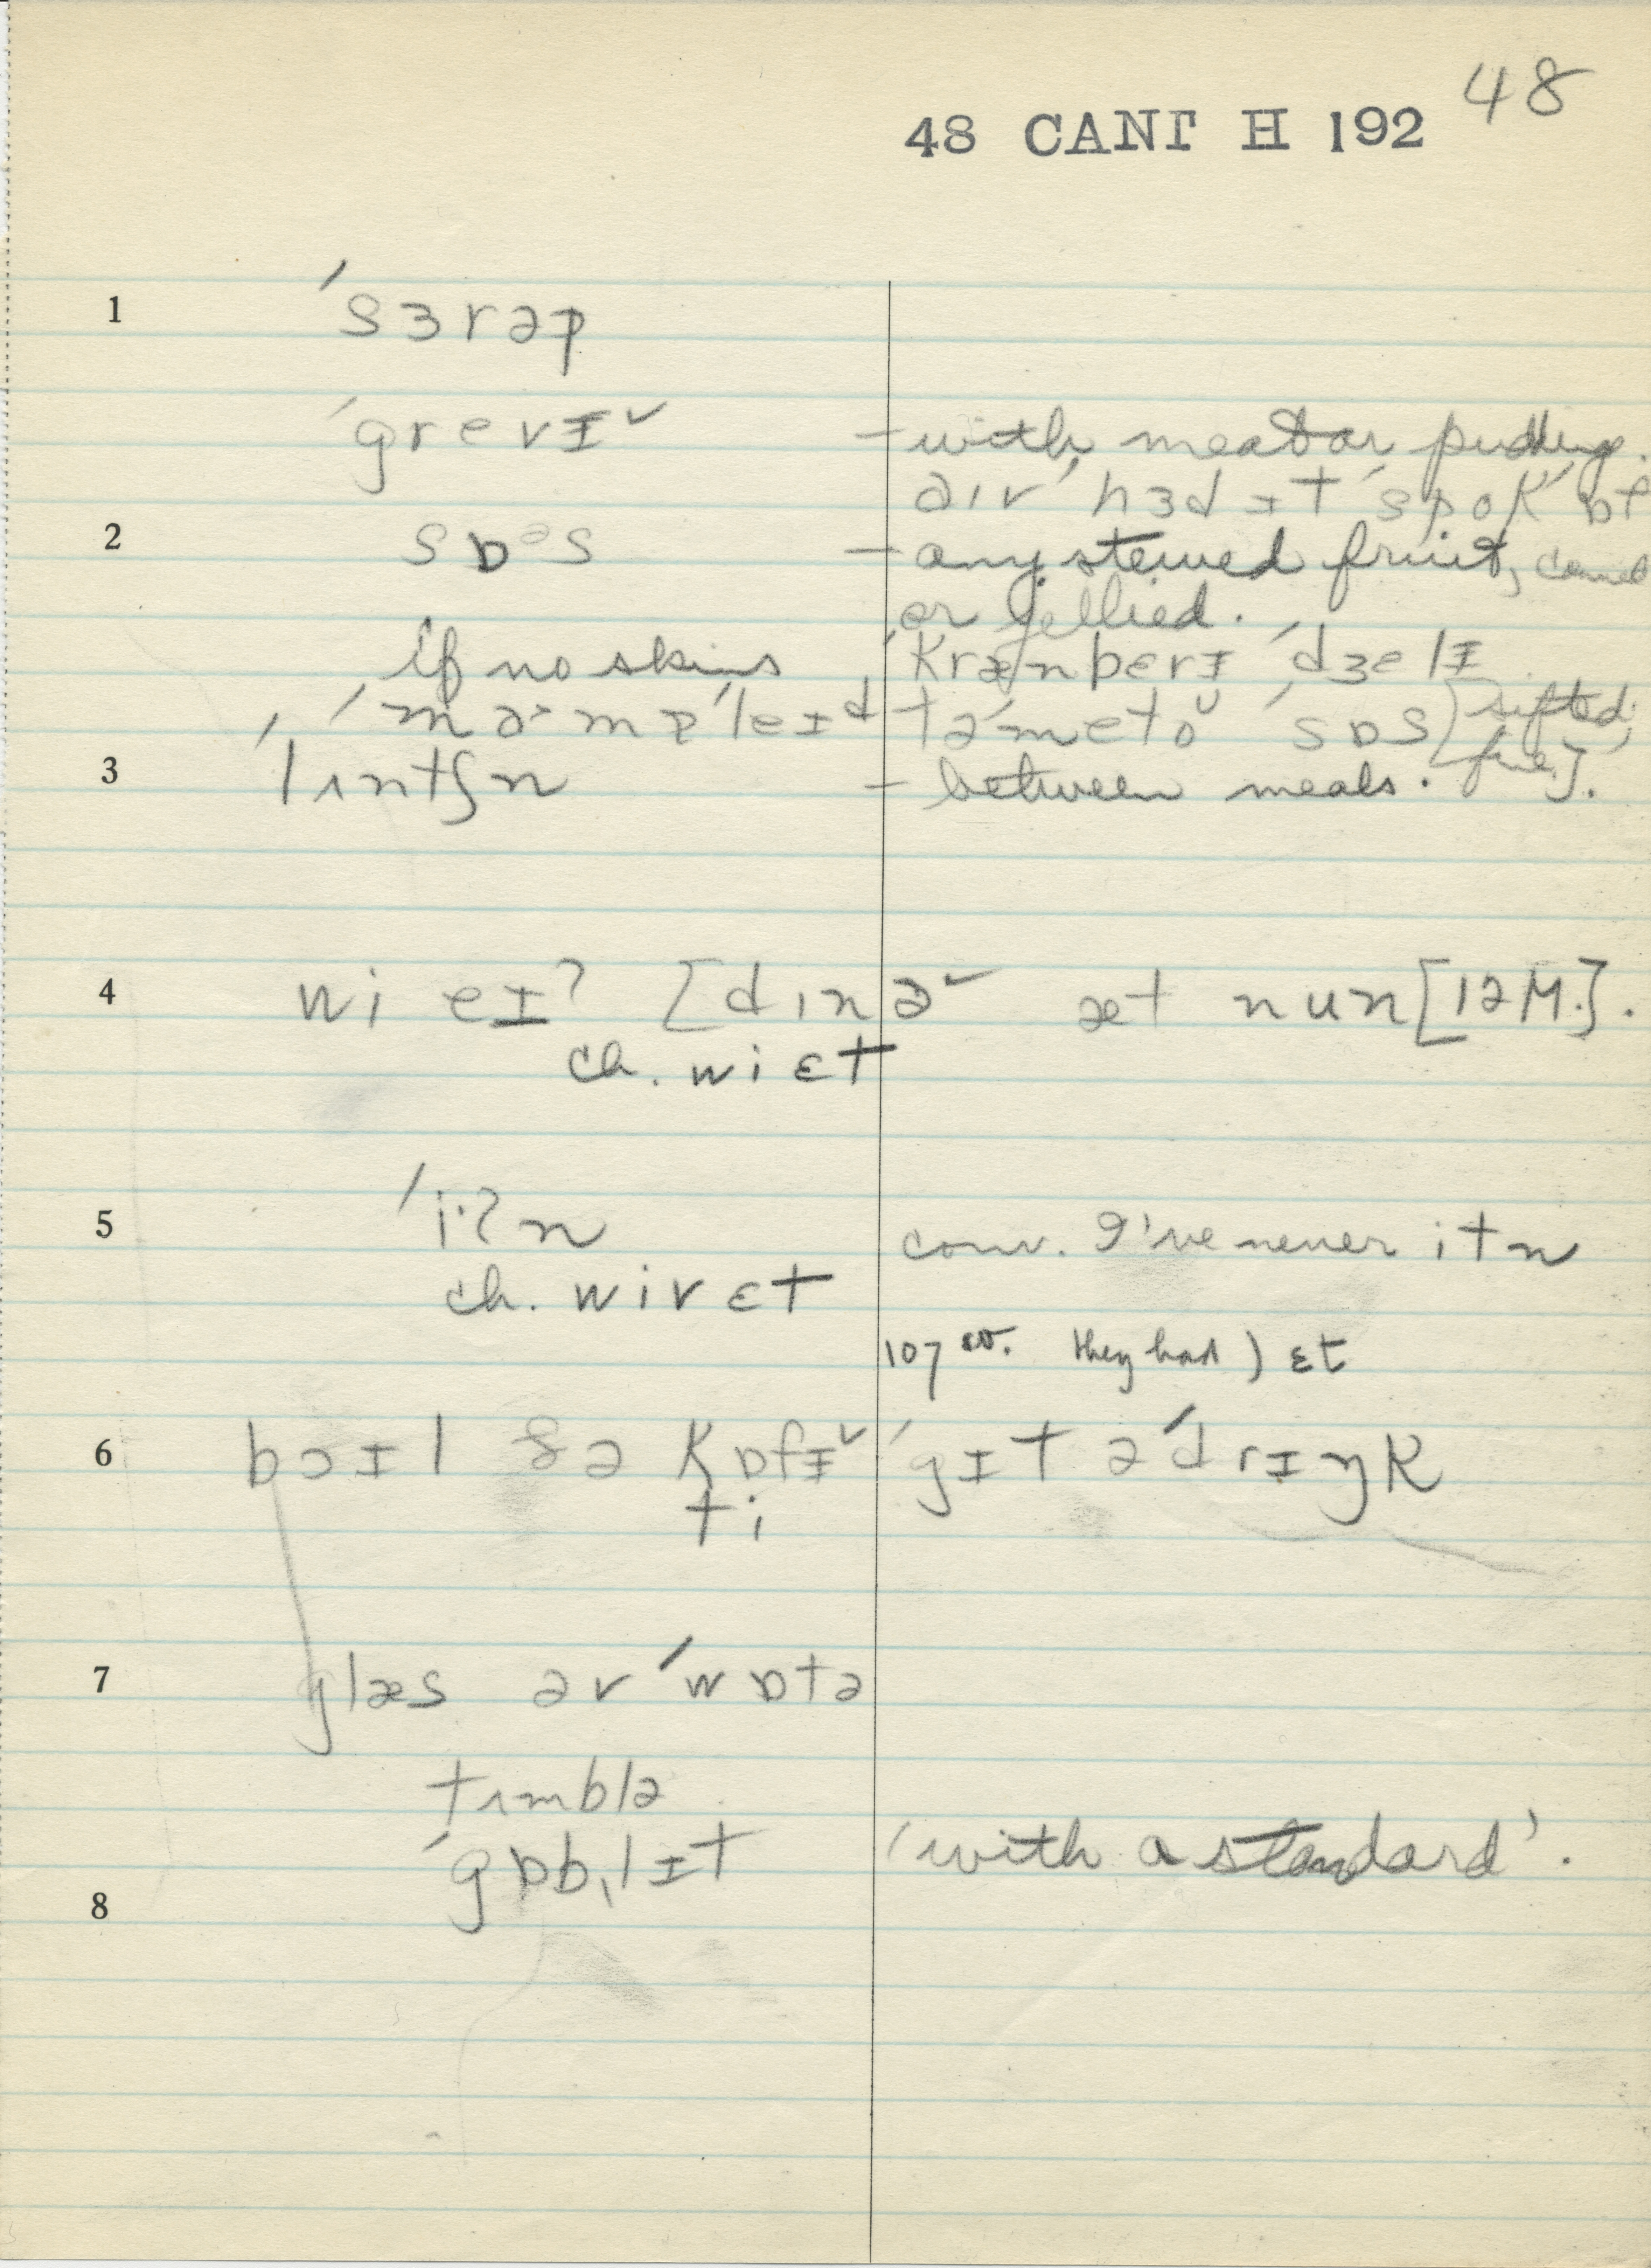 48
48 CANT H 192
1 ˈsɜrəp
ˈgrevɪˇ – with meat or pudding.
əɪv ˈhɜd ɪt ˈspok ɒf
2 sɒᵊs – any stewed fruit, canned
or jellied.
if no skins ˈkrænbɛrɪ ˈdʒelɪ
təˈmeto ˈsɒs [sifted,
fine].
3 ˈlʌntʃn – between meals.
4 wi eɪʔ [dɪnəˇ æt nun [12 M.].
ch. wi ɛt
5 ˈi·ʔn conv. I've never itn
ch. wiv ɛt
107 they had) ɛt
6 bɔɪl ðə kɒfɪˇ ˈgɪt əˈdrɪŋk
ti
7 glæs əv ˈwɒtə
tʌmblə
ˈgɒb,lɪt 'with a standard'.
8